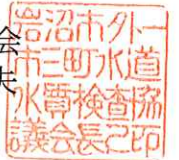 岩沼市外一
市三町水道
水質検査協
議会長之印